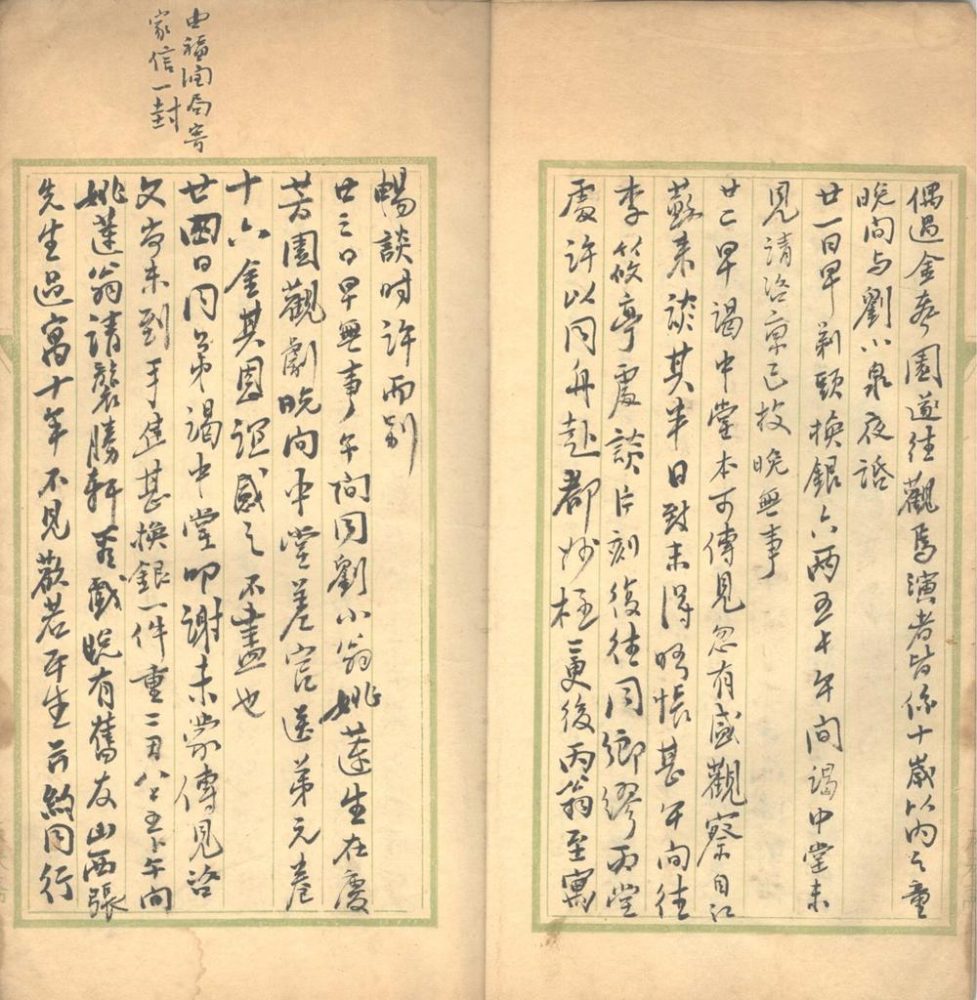 偶過金春園遂往觀焉演者皆係十歲以內之童
晚間与劉小泉夜話
廿一日早剃頭換銀六兩五午間謁中堂未
見請咨稟已投晚無事
廿二早謁中堂本可傳見忽有盛觀察自江
蘇來談其半日致未得晤悵甚午間往
李筱亭處談片刻後往同鄉繆雨堂
處許以同舟赴都妙極二更後丙翁至寓
暢談时许而别
廿三日早無事午间同劉小翁姚蓮生在慶
芳園觀劇晚间中堂差官送弟元卷
十六金其恩誼感之不盡也
廿四日同弟謁中堂叩謝未蒙傳見咨
文尚未到手焦甚換銀一件重二午间
姚蓮翁請襲勝軒看戲晚有舊友山西張
先生過寓十年不見歡若平生并約同行
由福潤局寄
家信一封